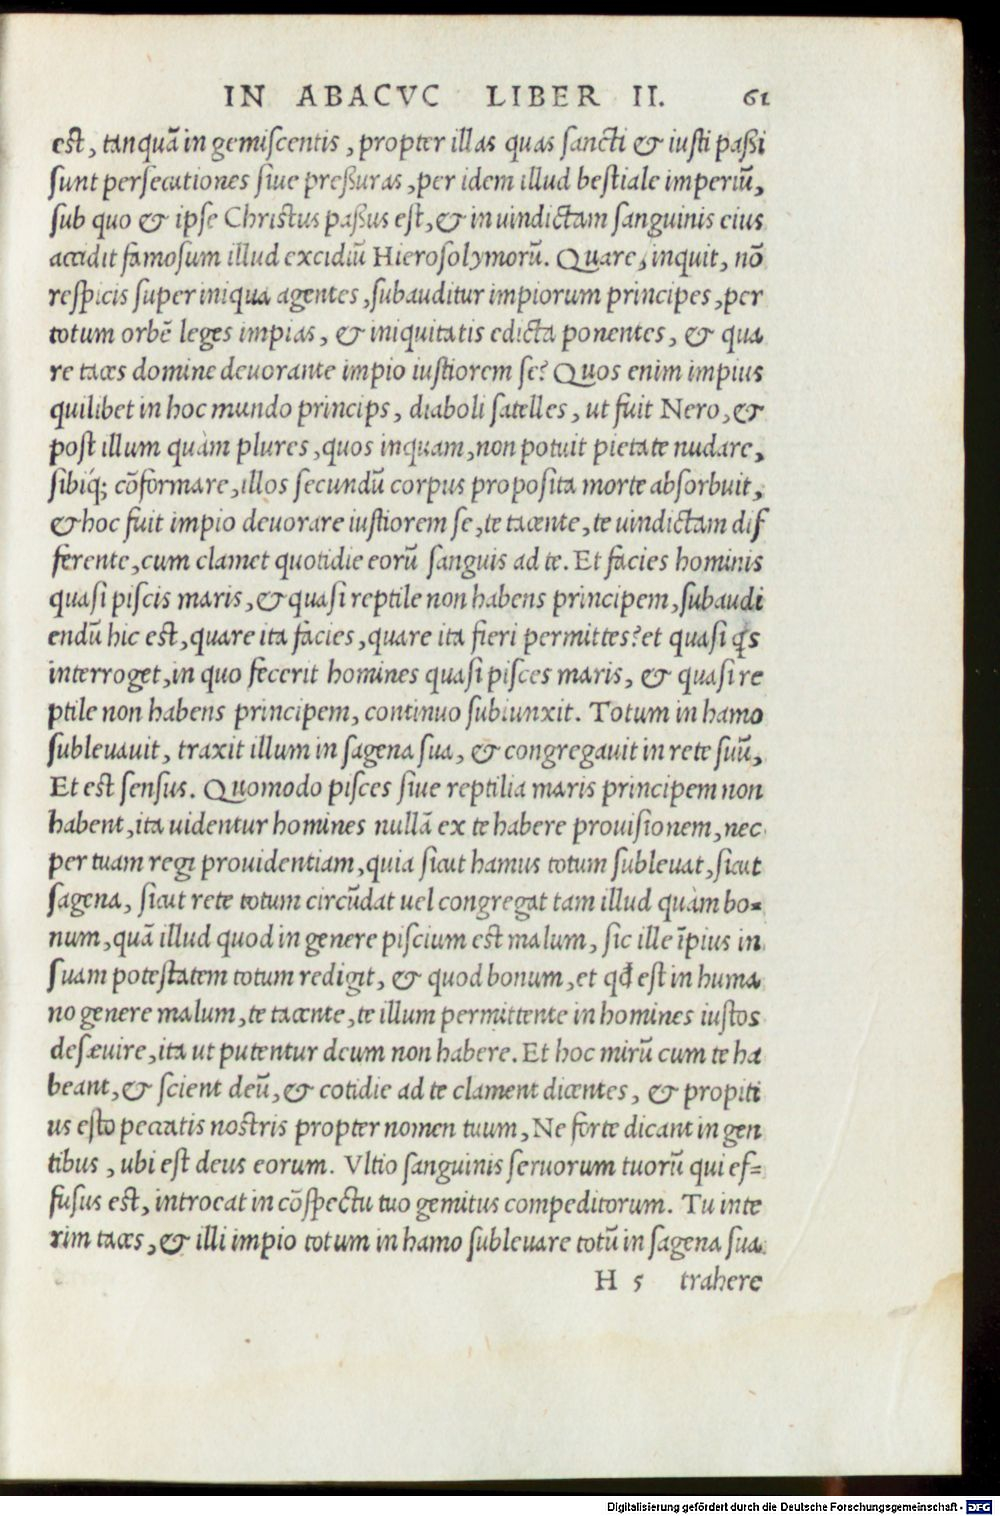 IN ABACVC LIBER II. 61
est, tanquā in gemiscentis, propter illas quas sancti & iusti paßi
sunt persecutiones siue preßuras, per idem illud bestiale imperiū,
sub quo & ipse Christus paßus est, & in uindictam sanguinis eius
accidit famosum illud excidiū Hierosolymorū. Quare, inquit, nō
respicis super iniqua agentes, subauditur impiorum principes, per
totum orbē leges impias, & iniquitatis edicta ponentes, & qua
re taces domine deuorante impio iustiorem se? Quos enim impius
quilibet in hoc mundo princips, diaboli satelles, ut fuit Nero, &
post illum quàm plures, quos inquam, non potuit pietate nudare,
sibiq́; cōformare, illos secundū corpus proposita morte absorbuit,
& hoc fuit impio deuorare iustiorem se, te tacente, te uindictam dif
ferente, cum clamet quotidie eorū sanguis ad te. Et facies hominis
quasi piscis maris, & quasi reptile non habens principem, subaudi
endū hic est, quare ita facies, quare ita fieri permittes? et quasi q̃s
interroget, in quo fecerit homines quasi pisces maris, & quasi re
ptile non habens principem, continuo subiunxit. Totum in hamo
subleuauit, traxit illum in sagena sua, & congregauit in rete suū,
Et est sensus. Quomodo pisces siue reptilia maris principem non
habent, ita uidentur homines nullā ex te habere prouisionem, nec
per tuam regi prouidentiam, quia sicut hamus totum subleuat, sicut
sagena, sicut rete totum circūdat uel congregat tam illud quàm bo-
num, quā illud quod in genere piscium est malum, sic ille īpius in
suam potestatem totum redigit, & quod bonum, et qđ est in huma
no genere malum, te tacente, te illum permittente in homines iustos
desæuire, ita ut putentur deum non habere. Et hoc mirū cum te ha
beant, & scient deū, & cotidie ad te clament dicentes, & propiti
us esto peccatis nostris propter nomen tuum, Ne forte dicant in gen
tibus, ubi est deus eorum. Vltio sanguinis seruorum tuorū qui ef=
fusus est, introeat in cōspectu tuo gemitus compeditorum. Tu inte
rim taces, & illi impio totum in hamo subleuare totū in sagena sua
H 5 trahere
Digitalisierung gefördert durch die Deutsche Forschungsgemeinschaft - DFG